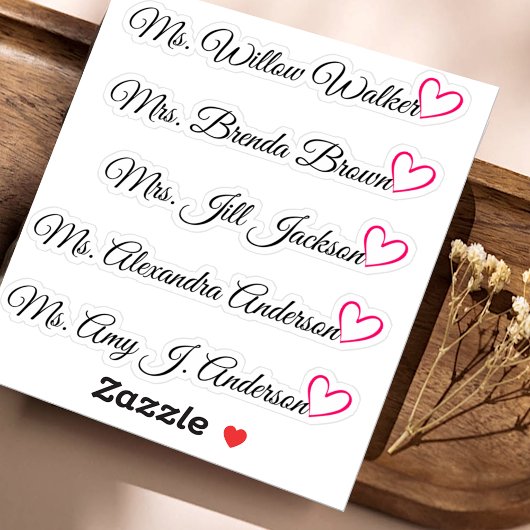 Ms. Willow Walker
Mrs. Brenda Brown
Mrs. Jill Jackson
Ms. Alexandra Anderson
Ms. Amy J. Anderson
Zazzle